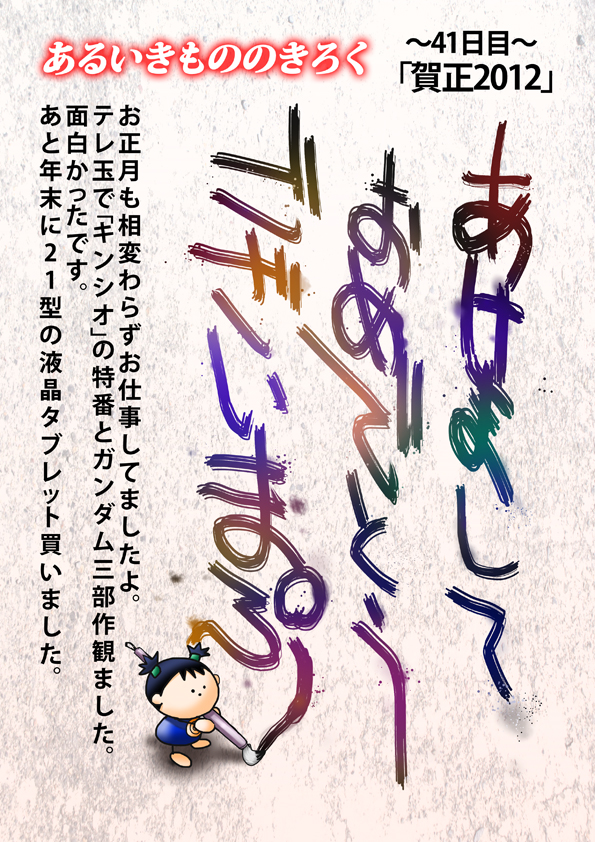 あるいきもののきろく
～41日目～
「賀正2012」
あけまして
おめでとう
お正月も相変わらずお仕事してましたよ。
テレ玉で「キンシオ」の特番とガンダム三部作観ました。
面白かったです。
あと年末に21型の液晶タブレット買いました。